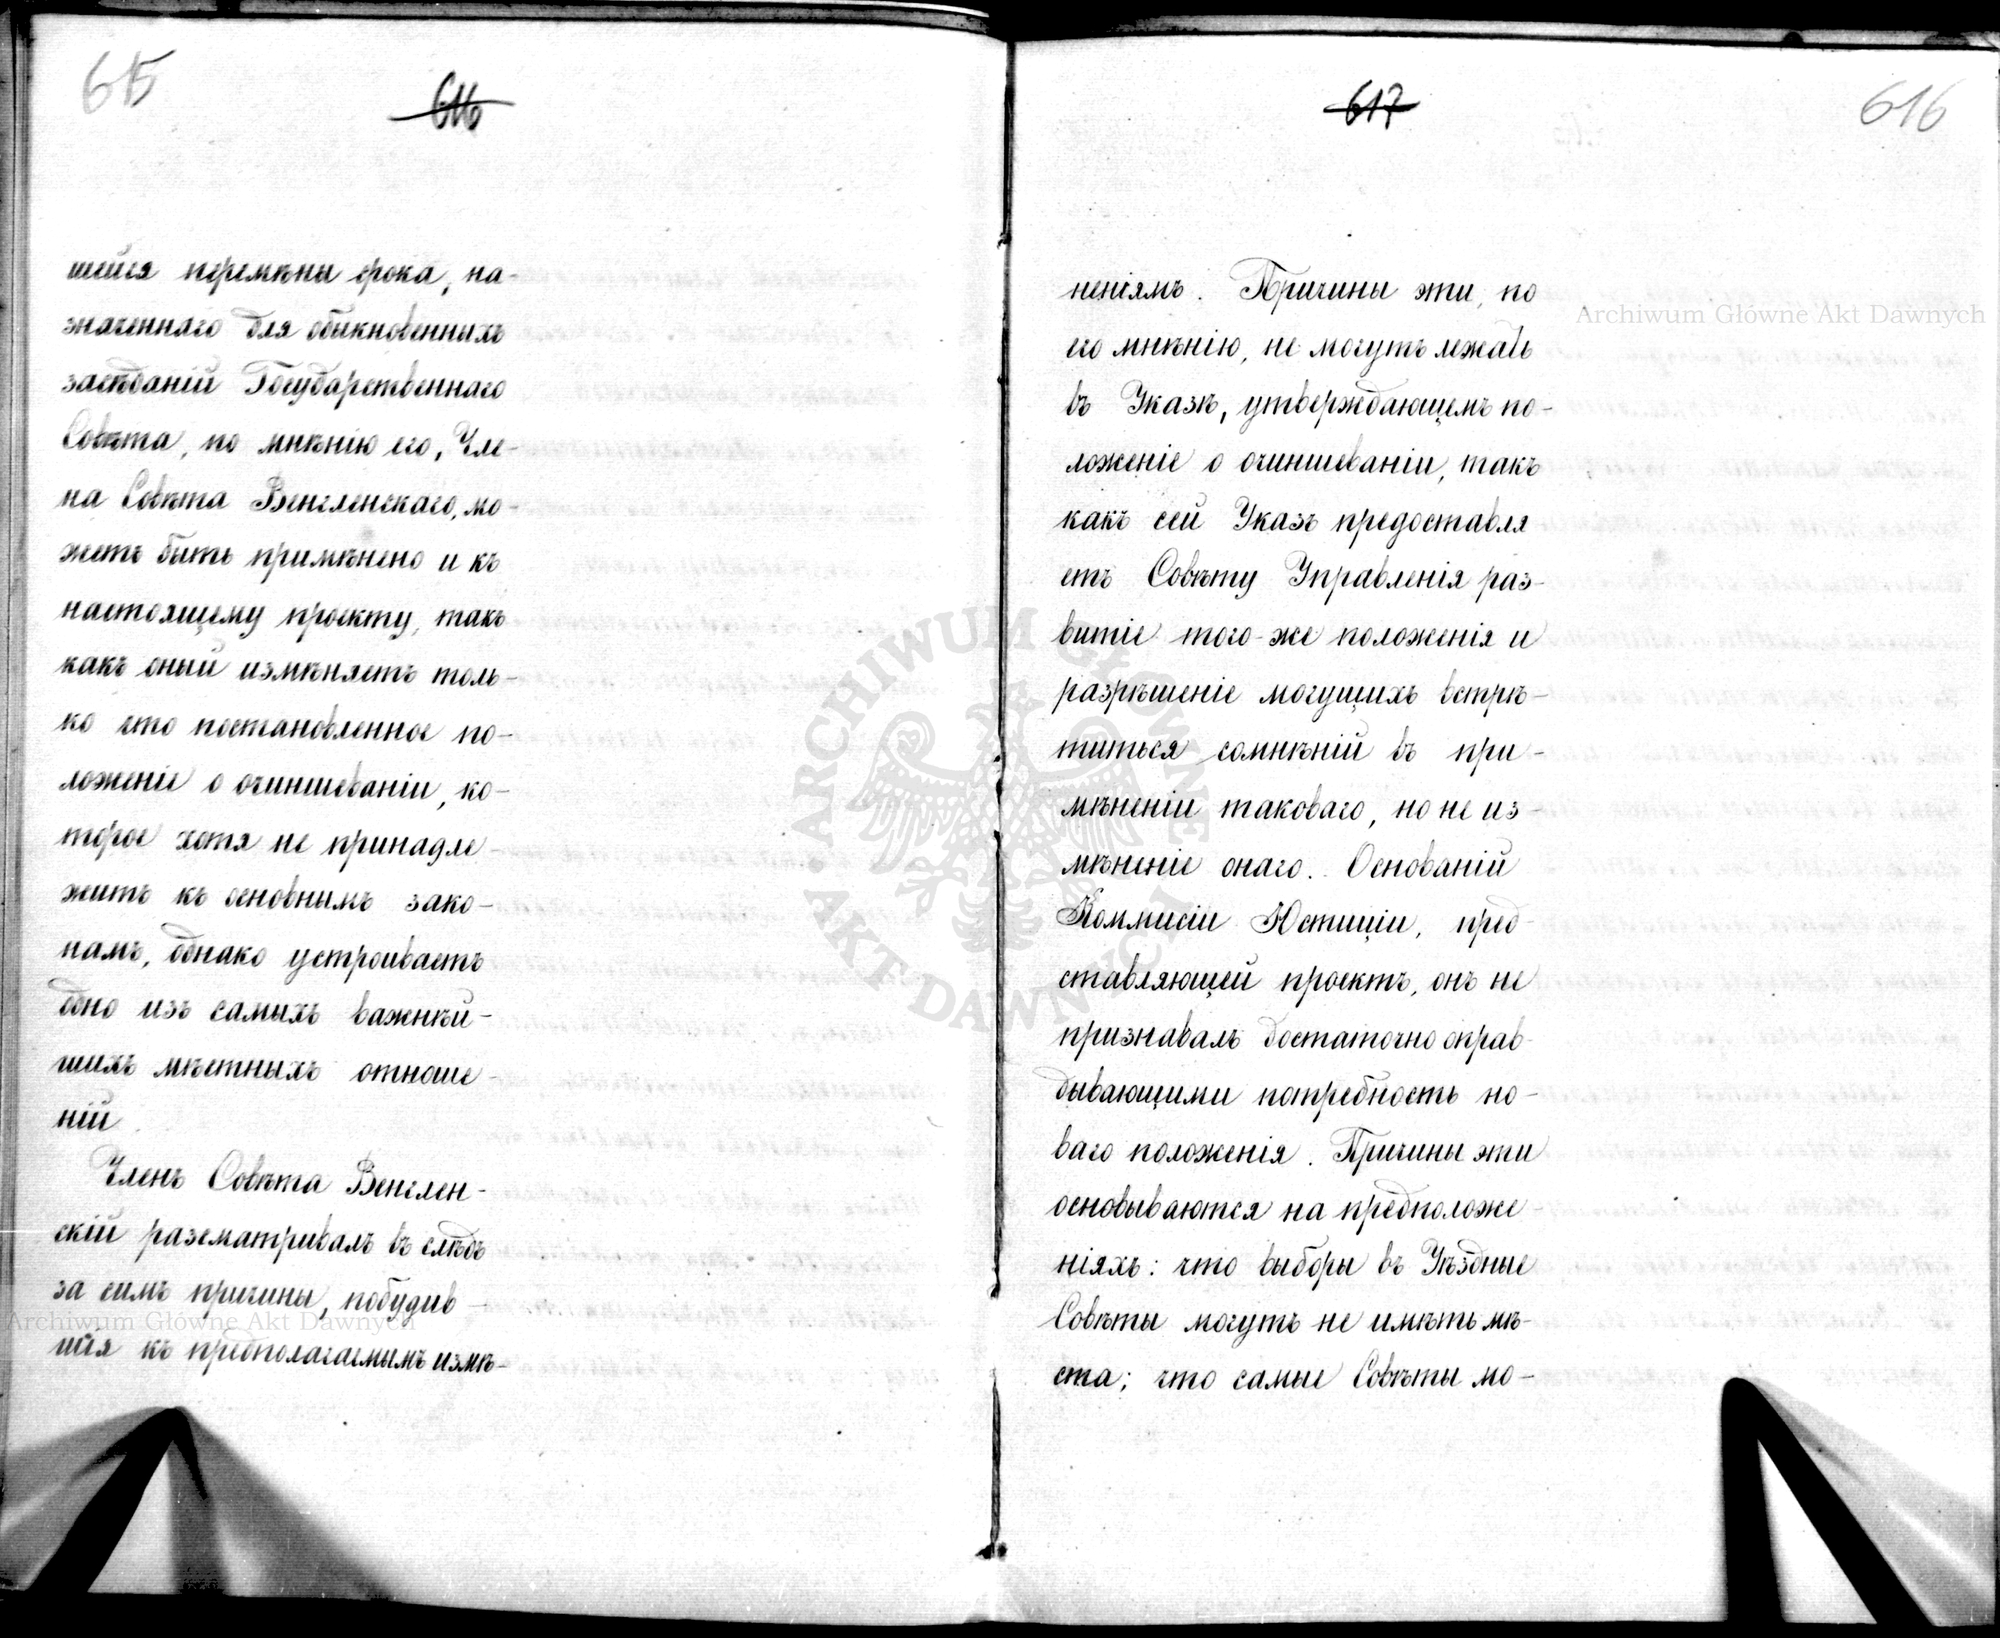 615
616
шейся перемѣны срока, на-
значеннаго для обыкновенныхъ
засѣданій Государственнаго
Совѣта, по мнѣнію его, Чле-
на Совѣта Венгленскаго, мо-
жетъ быть примѣнено и къ
настоящему проекту, такъ
какъ оный измѣняетъ толь-
ко что постановленное по-
ложеніе о очиншеваніи, ко-
торое хотя не принадле-
житъ къ основнымъ зако-
намъ, однако устроиваетъ
одно изъ самыхъ важнѣй-
шихъ мѣстныхъ отноше-
ній.
Членъ Совѣта Венглен-
скій разсматривалъ въ слѣдъ
за симъ причины, побудив-
шія къ предполагаемымъ измѣ-
617
616
неніямъ. Причины эти, по
его мнѣнію, не могутъ лежать
въ Указѣ, утверждающемъ по-
ложеніе о очиншеваніи, такъ
какъ сей Указъ предоставля
етъ Совѣту Управленія раз-
витіе того-же положенія и
разрѣшеніе могущихъ встрѣ-
титься сомнѣній въ при-
мѣненіи таковаго, но не из-
мѣненіе онаго. Основаній
Коммисіи Юстиціи, пред-
ставляющей проектъ, онъ не
признавалъ достаточно оправ-
дывающими потребность но-
ваго положенія. Причины эти
основываются на предположе-
ніяхъ: что выборы въ Уѣздные
Совѣты могутъ не имѣть мѣ-
ста; что самые Совѣты мо-
Archiwum Główne Akt Dawnych
Archiwum Główne Akt Dawnych
ARCHIWUM GŁÓWNE AKT DAWNYCH